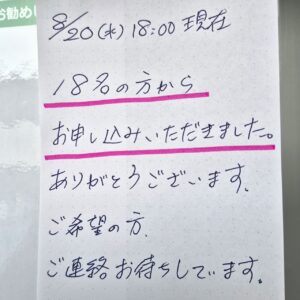 お勧め
8/20(水)18:00現在
18名の方から
お申し込みいただきました。
ありがとうございます.
ご希望の方.
ご連絡お待ちしています.